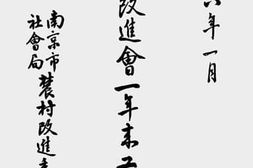 年一月
改進會一年来
南京市
社會局
農村改進